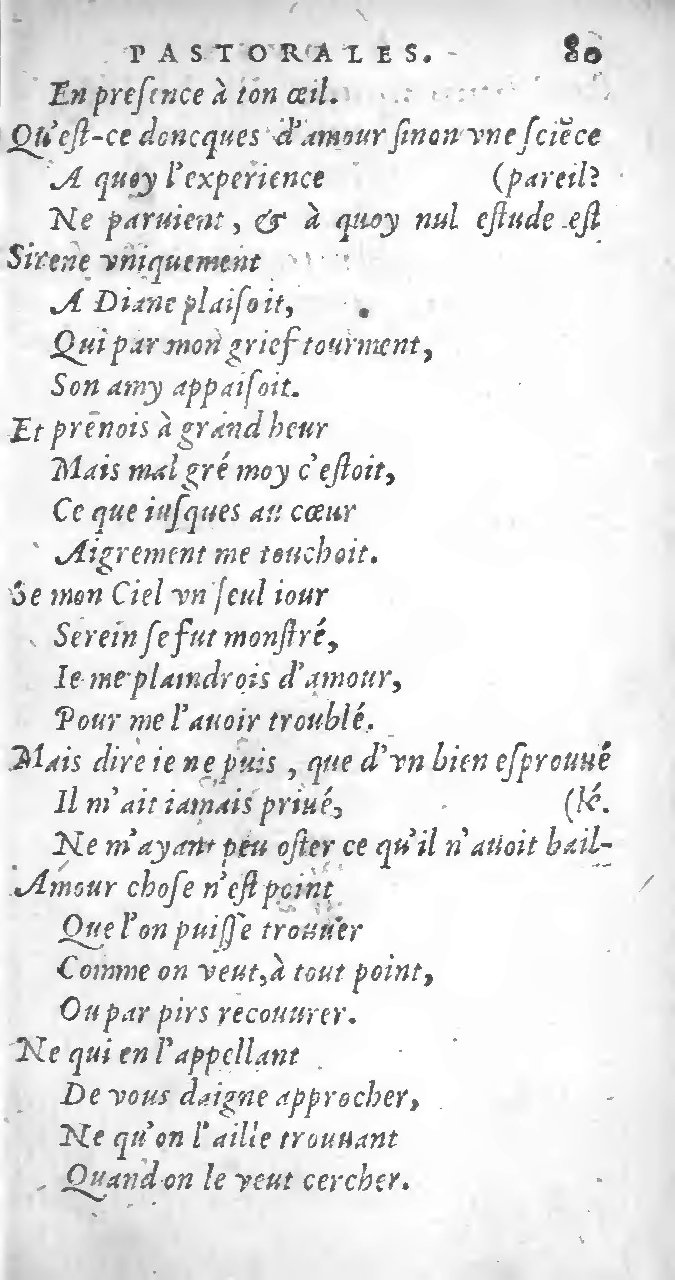 PASTORALES. 80
En preſence à ton œil.
Qu'eſt-ce doncques d'amour ſinon vne ſciēce
A quoy l'experience (pareil?
Ne paruient, & à quoy nul eſtude eſt
Sirene vniquement
A Diane plaiſoit,
Qui par mon grief tourment,
Son amy appaiſoit.
Et prenois à grand heur
Mais malgré moy c'eſtoit,
Ce que iuſques au cœur
Aigrement me touchoit.
Se mon Ciel vn ſeul iour
Serein ſe fut monſtré,
Ie me plaindrois d'amour,
Pour me l'auoir troublé.
Mais dire ie ne puis, que d'vn bien eſprouué
Il m'ait iamais priué, (lé.
Ne m'ayant peu oſter ce qu'il n'auoit bail-
Amour choſe n'eſt point
Que l'on puiſſe trouuer
Comme on veut, à tout point,
Ou par pirs recouurer.
Ne qui en l'appellant
De vous daigne approcher,
Ne qu'on l'aille trouuant
Quand on le veut cercher.